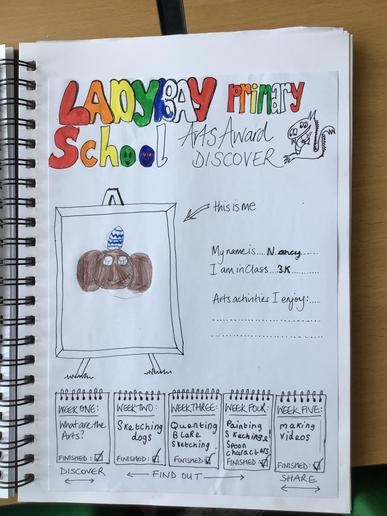 LADYBAY PRIMARY
School
Arts Award
DISCOVER
this is me
My name is....Nancy......
I am in Class..3K........
Arts activities I enjoy:....
WEEK ONE:
What are the
Arts?
FINISHED:
WEEK TWO:
Sketching
dogs
FINISHED:
WEEK THREE:
Quenting
Blake
Sketching
FINISHED:
WEEK FOUR:
Painting
Skeching &
Spoon
characters
FINISHED
WEEK FIVE:
making
videos
FINISHED:
DISCOVER
FIND OUT
SHARE